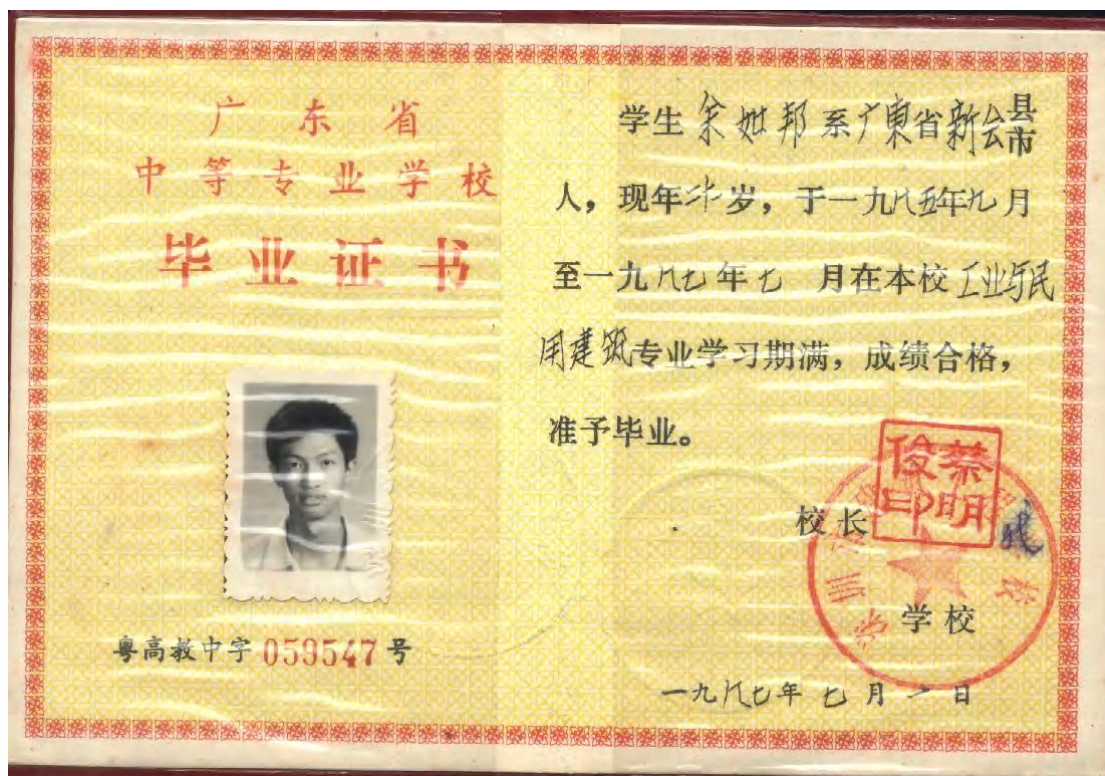 广东省
中等专业学校
毕业证书
粤高教中字 059547 号
学生 余 邦 系 广東省 新会 县市
人，现年 岁，于一九八五年九月
至一九八七年七 月在本校 工业与民
用建筑 专业学习期满，成绩合格，
准予毕业。
校长
蔡明俊印
学校
一九八七年 七 月 一 日